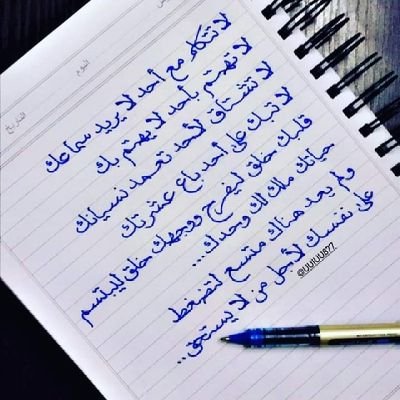 اليوم
التاريخ
لا تتكلم مع أحد لا يريد سماعك
لا تهتم بأحد لا يهتم بك
لا تشتاق لأحد تعمد نسيانك
لا تبك على أحد باع عشرتك
قلبك خلق ليفرح ووجهك خلق ليبتسم
حياتك ملك لك وحدك...
ولم يعد هناك متسع لتضغط
على نفسك لأجل من لا يستحق..